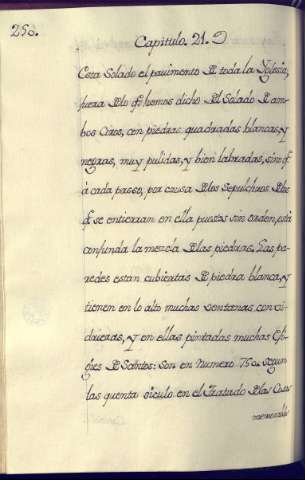 258.
Capitulo. 21.
Esta Solado el pavimento D toda la Yglesia,
fuera Dlo q̃ hemos dicho Dl Solado D am-
bos Coros, con piedras quadradas blancas, y
negras, muy pulidas, y bien labradas, sino q̃
à cada paso, por causa Dlos Sepulchros Dlos
q̃ se entierran en ella puestos sin orden, está
confunda la mezcla Dlas piedras. Las pa-
redes están cubiertas D piedra blanca, y
tienen en lo alto muchas ventanas con vi-
drieras, y en ellas pintadas muchas Efi-
gies D Santos: son en Numero 750. segun
las quenta siculo en el Tratado Dlas Cosas
memorabl